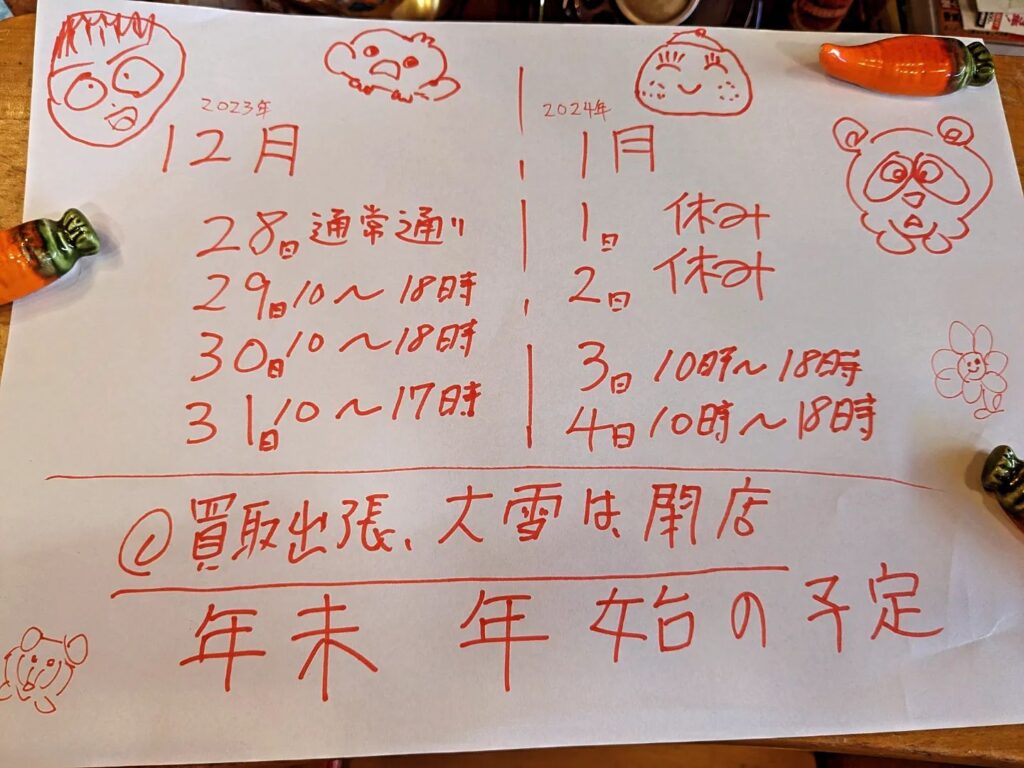 2023年
12月
28日通常通り
29日10〜18時
30日10〜18時
31日10〜17時
2024年
1月
1日 休み
2日 休み
3日 10時〜18時
4日 10時〜18時
◎買取出張、大雪は、閉店
年末 年始の予定